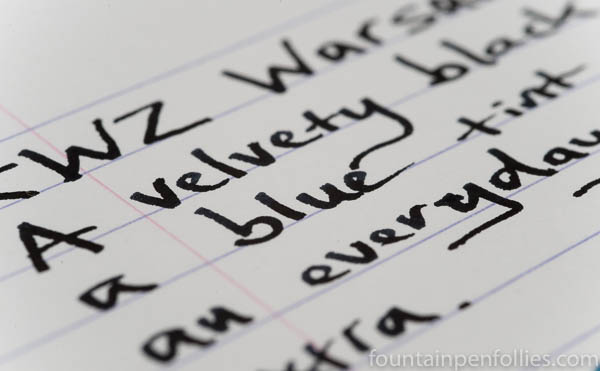 KWZ Warsa
A velvety black
a blue tint
an everyday
xtra.
fountainpenfollies.com